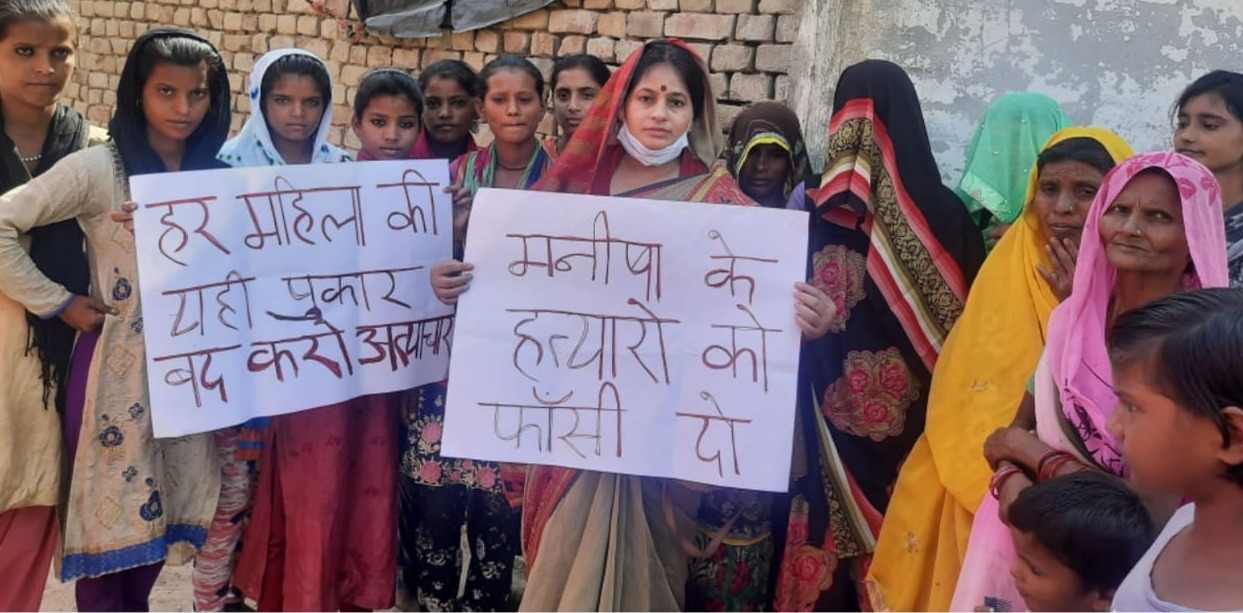 हर महिला की
यही पुकार
बंद करो अत्याचार
मनीषा के
हत्यारो को
फाँसी दो